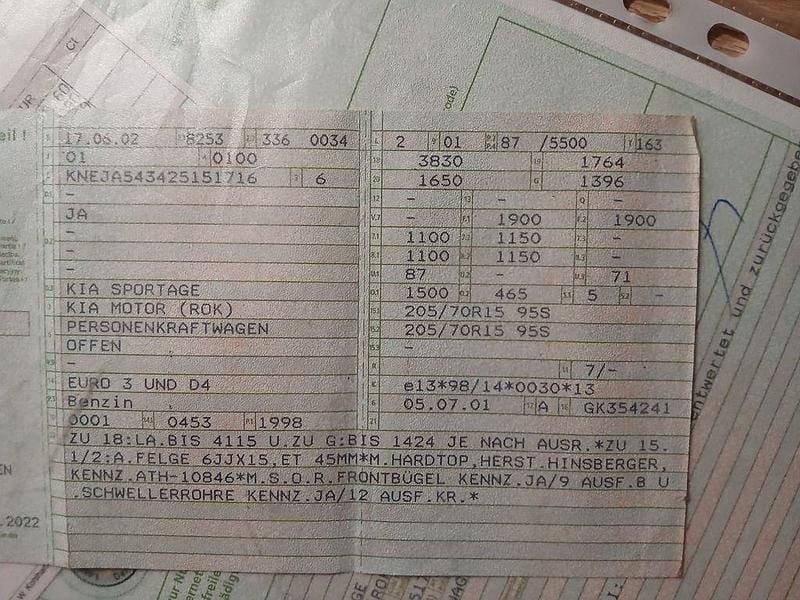 17.06.02 8253 336 0034
01 0100
KNEJA543425151716 6
-
JA
-
-
-
KIA SPORTAGE
KIA MOTOR (ROK)
PERSONENKRAFTWAGEN
OFFEN
-
EURO 3 UND D4
Benzin
0001 0453 1998
2 01 87 /5500 163
3830 1764
1650 1396
- - -
- 1900 1900
1100 1150 -
1100 1150 -
87 - 71
1500 465 5 -
205/70R15 95S
205/70R15 95S
-
7/-
e13*98/14*0030*13
05.07.01 A GK354241
ZU 18:LA.BIS 4115 U.ZU G:BIS 1424 JE NACH AUSR.*ZU 15.
1/2:A.FELGE 6JJX15,ET 45MM*M.HARDTOP,HERST.HINSBERGER,
KENNZ.ATH-10846*M.S.O.R.FRONTBÜGEL KENNZ.JA/9 AUSF.B U
.SCHWELLERROHRE KENNZ.JA/12 AUSF.KR.*
eil !
.2022
ode)
entwertet und zurückgegebe